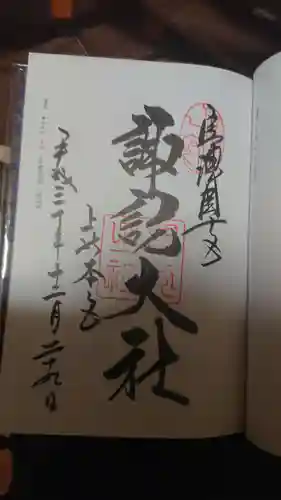 信濃國一宮
諏訪大社
上社本宮
平成三十年十二月二十九日